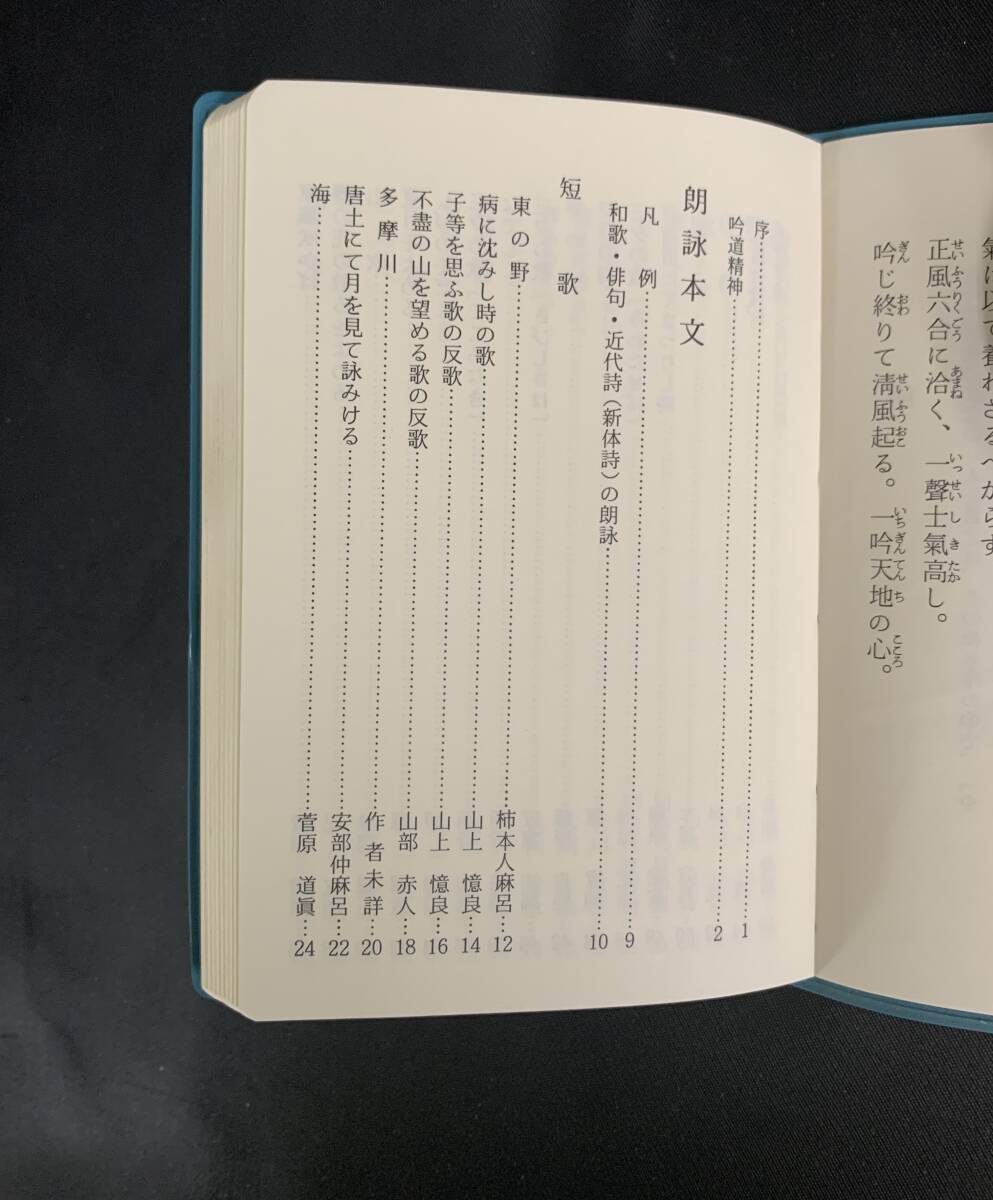 正風六合に洽く、一聲士氣高し。
吟じ終りて淸風起る。一吟天地の心。
序……………1
吟道精神……………2
朗詠本文
凡例……………9
和歌・俳句・近代詩(新体詩)の朗詠……………10
短歌
東の野……………柿本人麻呂…12
病に沈みし時の歌……………山上 憶良…14
子等を思ふ歌の反歌……………山上 憶良…16
不盡の山を望める歌の反歌……………山部 赤人…18
多摩川……………作者未詳…20
唐土にて月を見て詠みける……………安部仲麻呂…22
海……………菅原 道眞…24